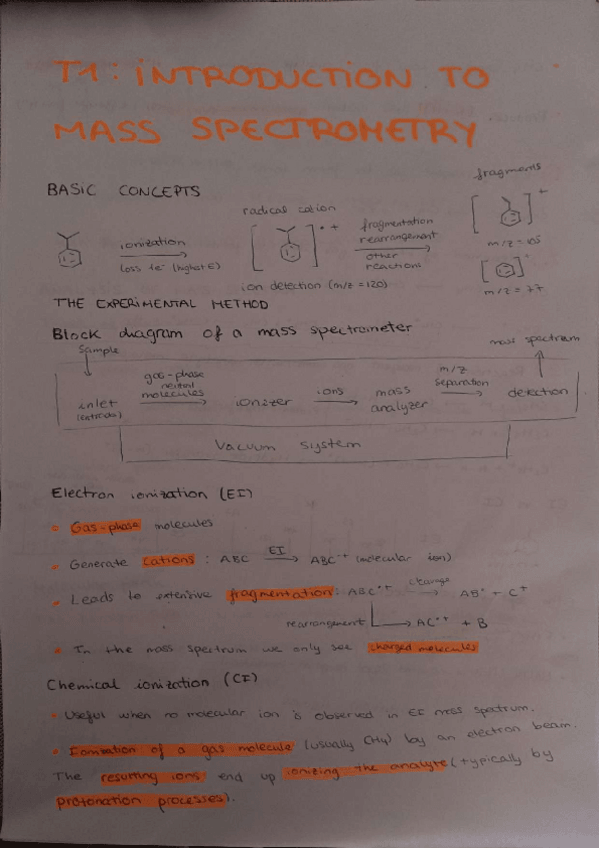 T1: INTRODUCTION TO
MASS SPECTROMETRY
BASIC CONCEPTS
fragments
radical cation
ionization
loss 1e- (highest E)
[ ]•+
fragmentation
rearrangement
other
reactions
[ ]+
m/z = 105
[ ]+
m/z = 77
ion detection (m/z = 120)
THE EXPERIMENTAL METHOD
Block diagram of a mass spectrometer
Sample
mass spectrum
inlet
(entrada)
gas-phase
neutral
molecules
ionizer
ions
mass
analyzer
m/z
separation
detection
Vacuum system
Electron ionization (EI)
• Gas-phase molecules
• Generate cations : ABC EI→ ABC•+ (molecular ion)
• Leads to extensive fragmentation : ABC•+ → AB• + C+
rearrangement → AC•+ + B
• In the mass spectrum we only see charged molecules
Chemical ionization (CI)
• Useful when no molecular ion is observed in EI mass spectrum.
• Ionization of a gas molecule (usually CH4) by an electron beam.
The resulting ions end up ionizing the analyte (typically by
protonation processes).